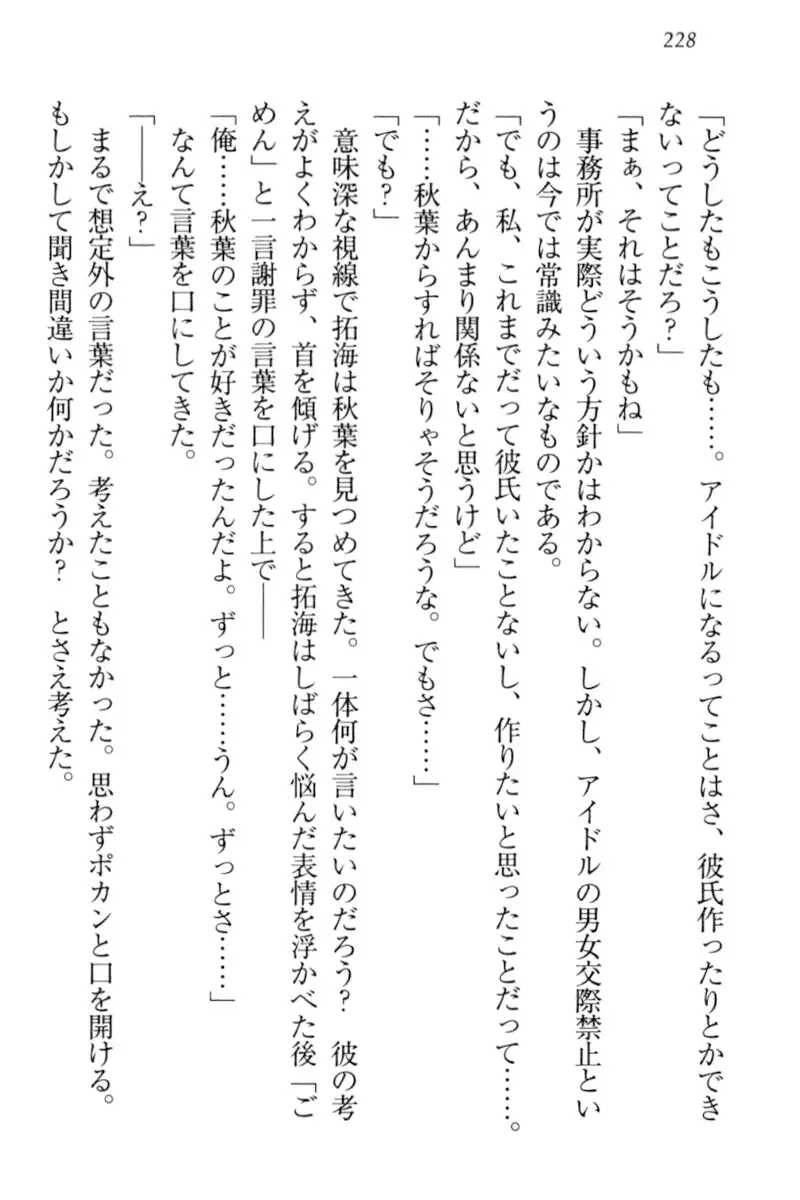 228
「どうしたもこうしたも……。アイドルになるってことはさ、彼氏作ったりとかでき
ないってことだろ？」
「まぁ、それはそうかもね」
　事務所が実際どういう方針かはわからない。しかし、アイドルの男女交際禁止とい
うのは今では常識みたいなものである。
「でも、私、これまでだって彼氏いたことないし、作りたいと思ったことだって……。
だから、あんまり関係ないと思うけど」
「……秋葉からすればそりゃそうだろうな。でもさ……」
「でも？」
　意味深な視線で拓海は秋葉を見つめてきた。一体何が言いたいのだろう？　彼の考
えがよくわからず、首を傾げる。すると拓海はしばらく悩んだ表情を浮かべた後「ご
めん」と一言謝罪の言葉を口にした上で――
「俺……秋葉のことが好きだったんだよ。ずっと……うん。ずっとさ……」
　なんて言葉を口にしてきた。
「――え？」
　まるで想定外の言葉だった。考えたこともなかった。思わずポカンと口を開ける。
もしかして聞き間違いか何かだろうか？　とさえ考えた。